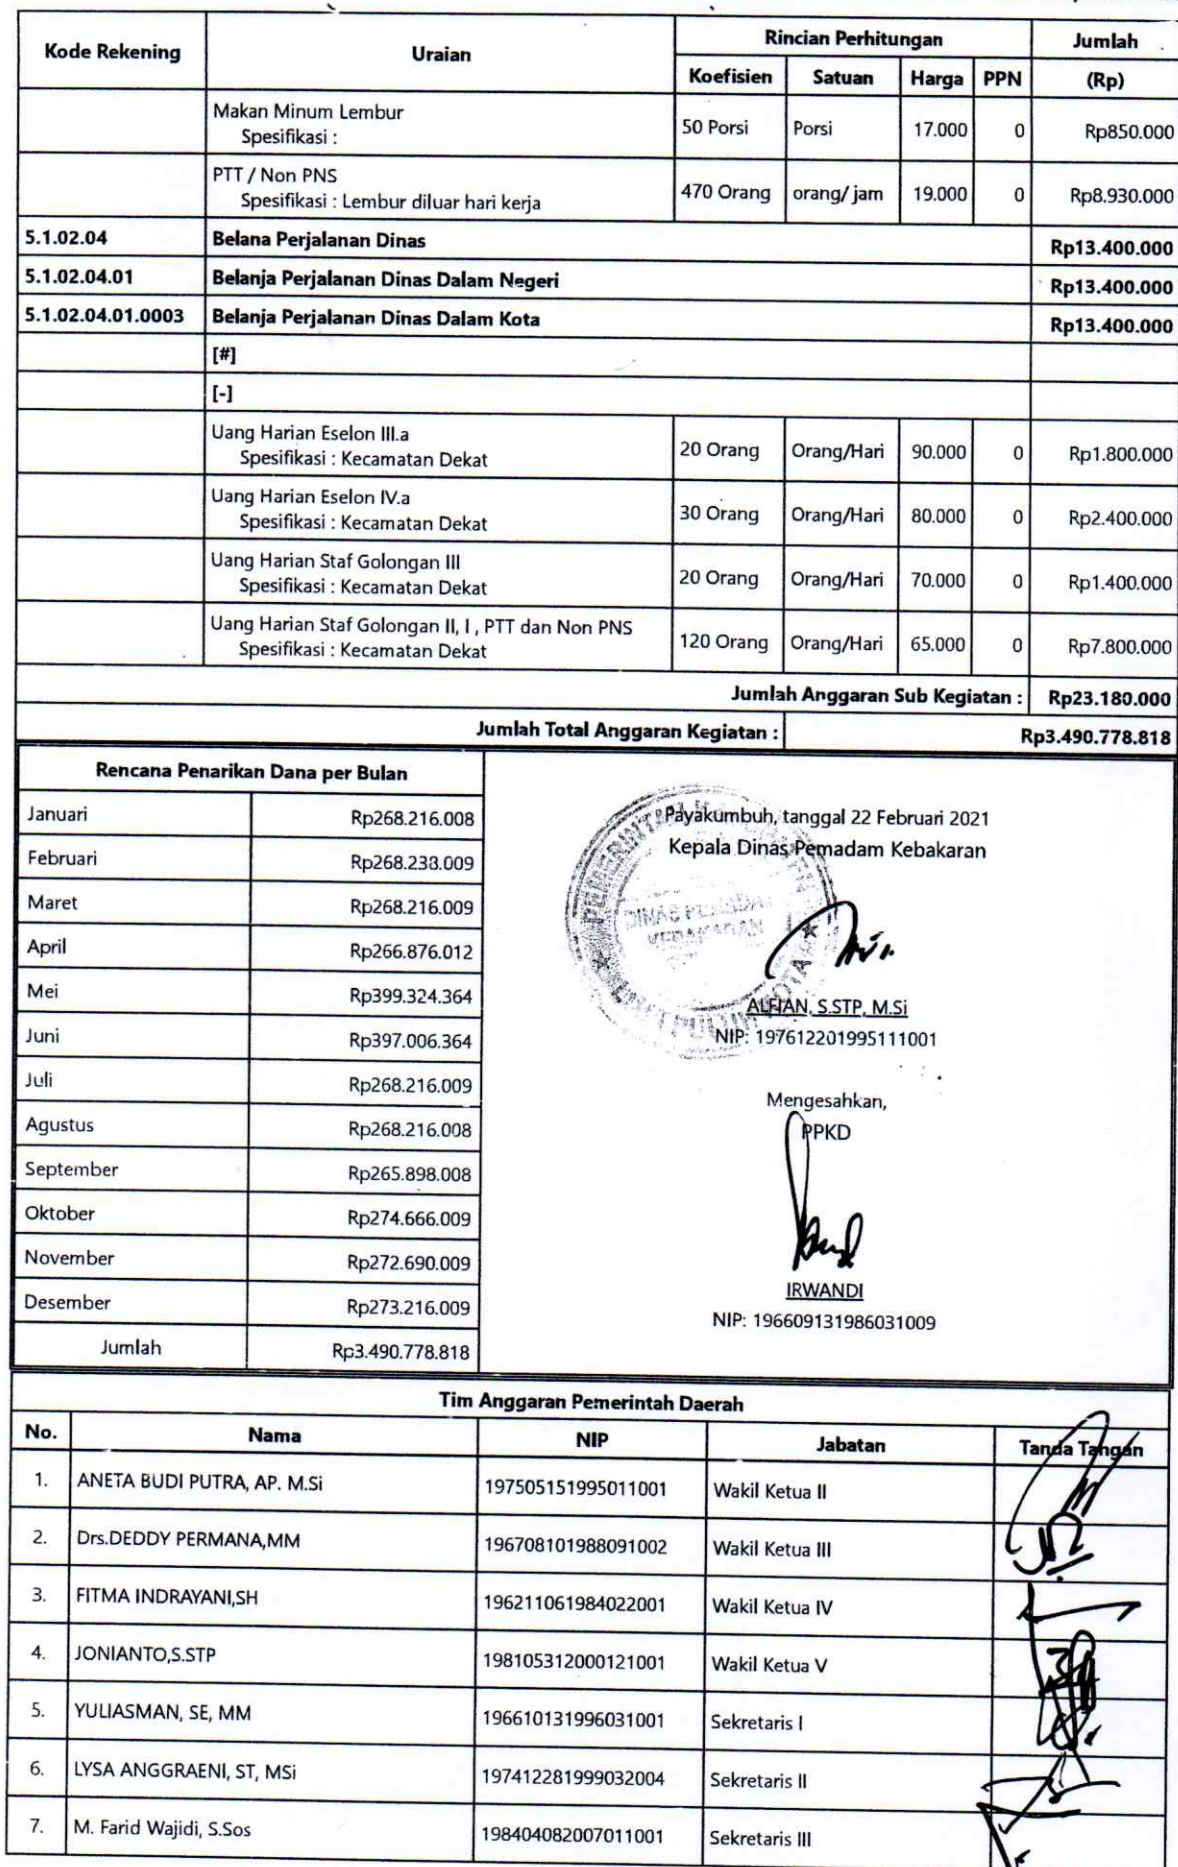 Kode Rekening Uraian Rincian Perhitungan Jumlah
Koefisien Satuan Harga PPN (Rp)
Makan Minum Lembur
Spesifikasi : 50 Porsi Porsi 17.000 0 Rp850.000
PTT / Non PNS
Spesifikasi : Lembur diluar hari kerja 470 Orang orang/ jam 19.000 0 Rp8.930.000
5.1.02.04 Belana Perjalanan Dinas Rp13.400.000
5.1.02.04.01 Belanja Perjalanan Dinas Dalam Negeri Rp13.400.000
5.1.02.04.01.0003 Belanja Perjalanan Dinas Dalam Kota Rp13.400.000
[#]
[-]
Uang Harian Eselon III.a
Spesifikasi : Kecamatan Dekat 20 Orang Orang/Hari 90.000 0 Rp1.800.000
Uang Harian Eselon IV.a
Spesifikasi : Kecamatan Dekat 30 Orang Orang/Hari 80.000 0 Rp2.400.000
Uang Harian Staf Golongan III
Spesifikasi : Kecamatan Dekat 20 Orang Orang/Hari 70.000 0 Rp1.400.000
Uang Harian Staf Golongan II, I , PTT dan Non PNS
Spesifikasi : Kecamatan Dekat 120 Orang Orang/Hari 65.000 0 Rp7.800.000
Jumlah Anggaran Sub Kegiatan : Rp23.180.000
Jumlah Total Anggaran Kegiatan : Rp3.490.778.818
Rencana Penarikan Dana per Bulan
Januari Rp268.216.008
Februari Rp268.233.009
Maret Rp268.216.009
April Rp266.876.012
Mei Rp399.324.364
Juni Rp397.006.364
Juli Rp268.216.009
Agustus Rp268.216.008
September Rp265.898.008
Oktober Rp274.666.009
November Rp272.690.009
Desember Rp273.216.009
Jumlah Rp3.490.778.818
Payakumbuh, tanggal 22 Februari 2021
Kepala Dinas Pemadam Kebakaran
DINAS PEMADAM
KEBAKARAN
ALFIAN, S.STP, M.Si
NIP: 197612201995111001
Mengesahkan,
PPKD
IRWANDI
NIP: 196609131986031009
Tim Anggaran Pemerintah Daerah
No. Nama NIP Jabatan Tanda Tangan
1. ANETA BUDI PUTRA, AP. M.Si 197505151995011001 Wakil Ketua II
2. Drs.DEDDY PERMANA,MM 196708101988091002 Wakil Ketua III
3. FITMA INDRAYANI,SH 196211061984022001 Wakil Ketua IV
4. JONIANTO,S.STP 198105312000121001 Wakil Ketua V
5. YULIASMAN, SE, MM 196610131996031001 Sekretaris I
6. LYSA ANGGRAENI, ST, MSi 197412281999032004 Sekretaris II
7. M. Farid Wajidi, S.Sos 198404082007011001 Sekretaris III